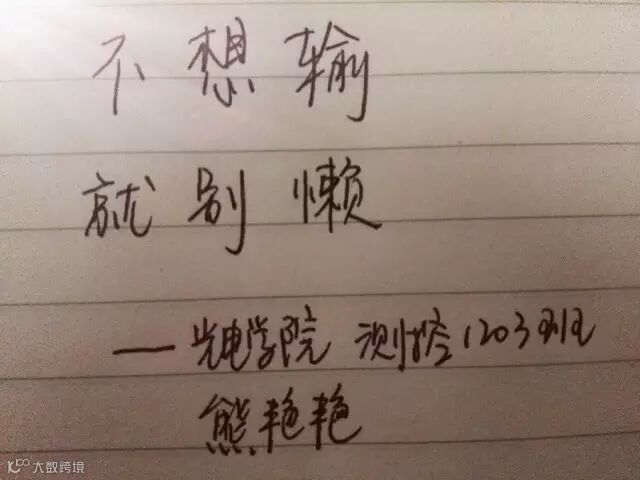 不想输
就别懒
——光电学院 测控1203班
熊艳艳
大数跨境